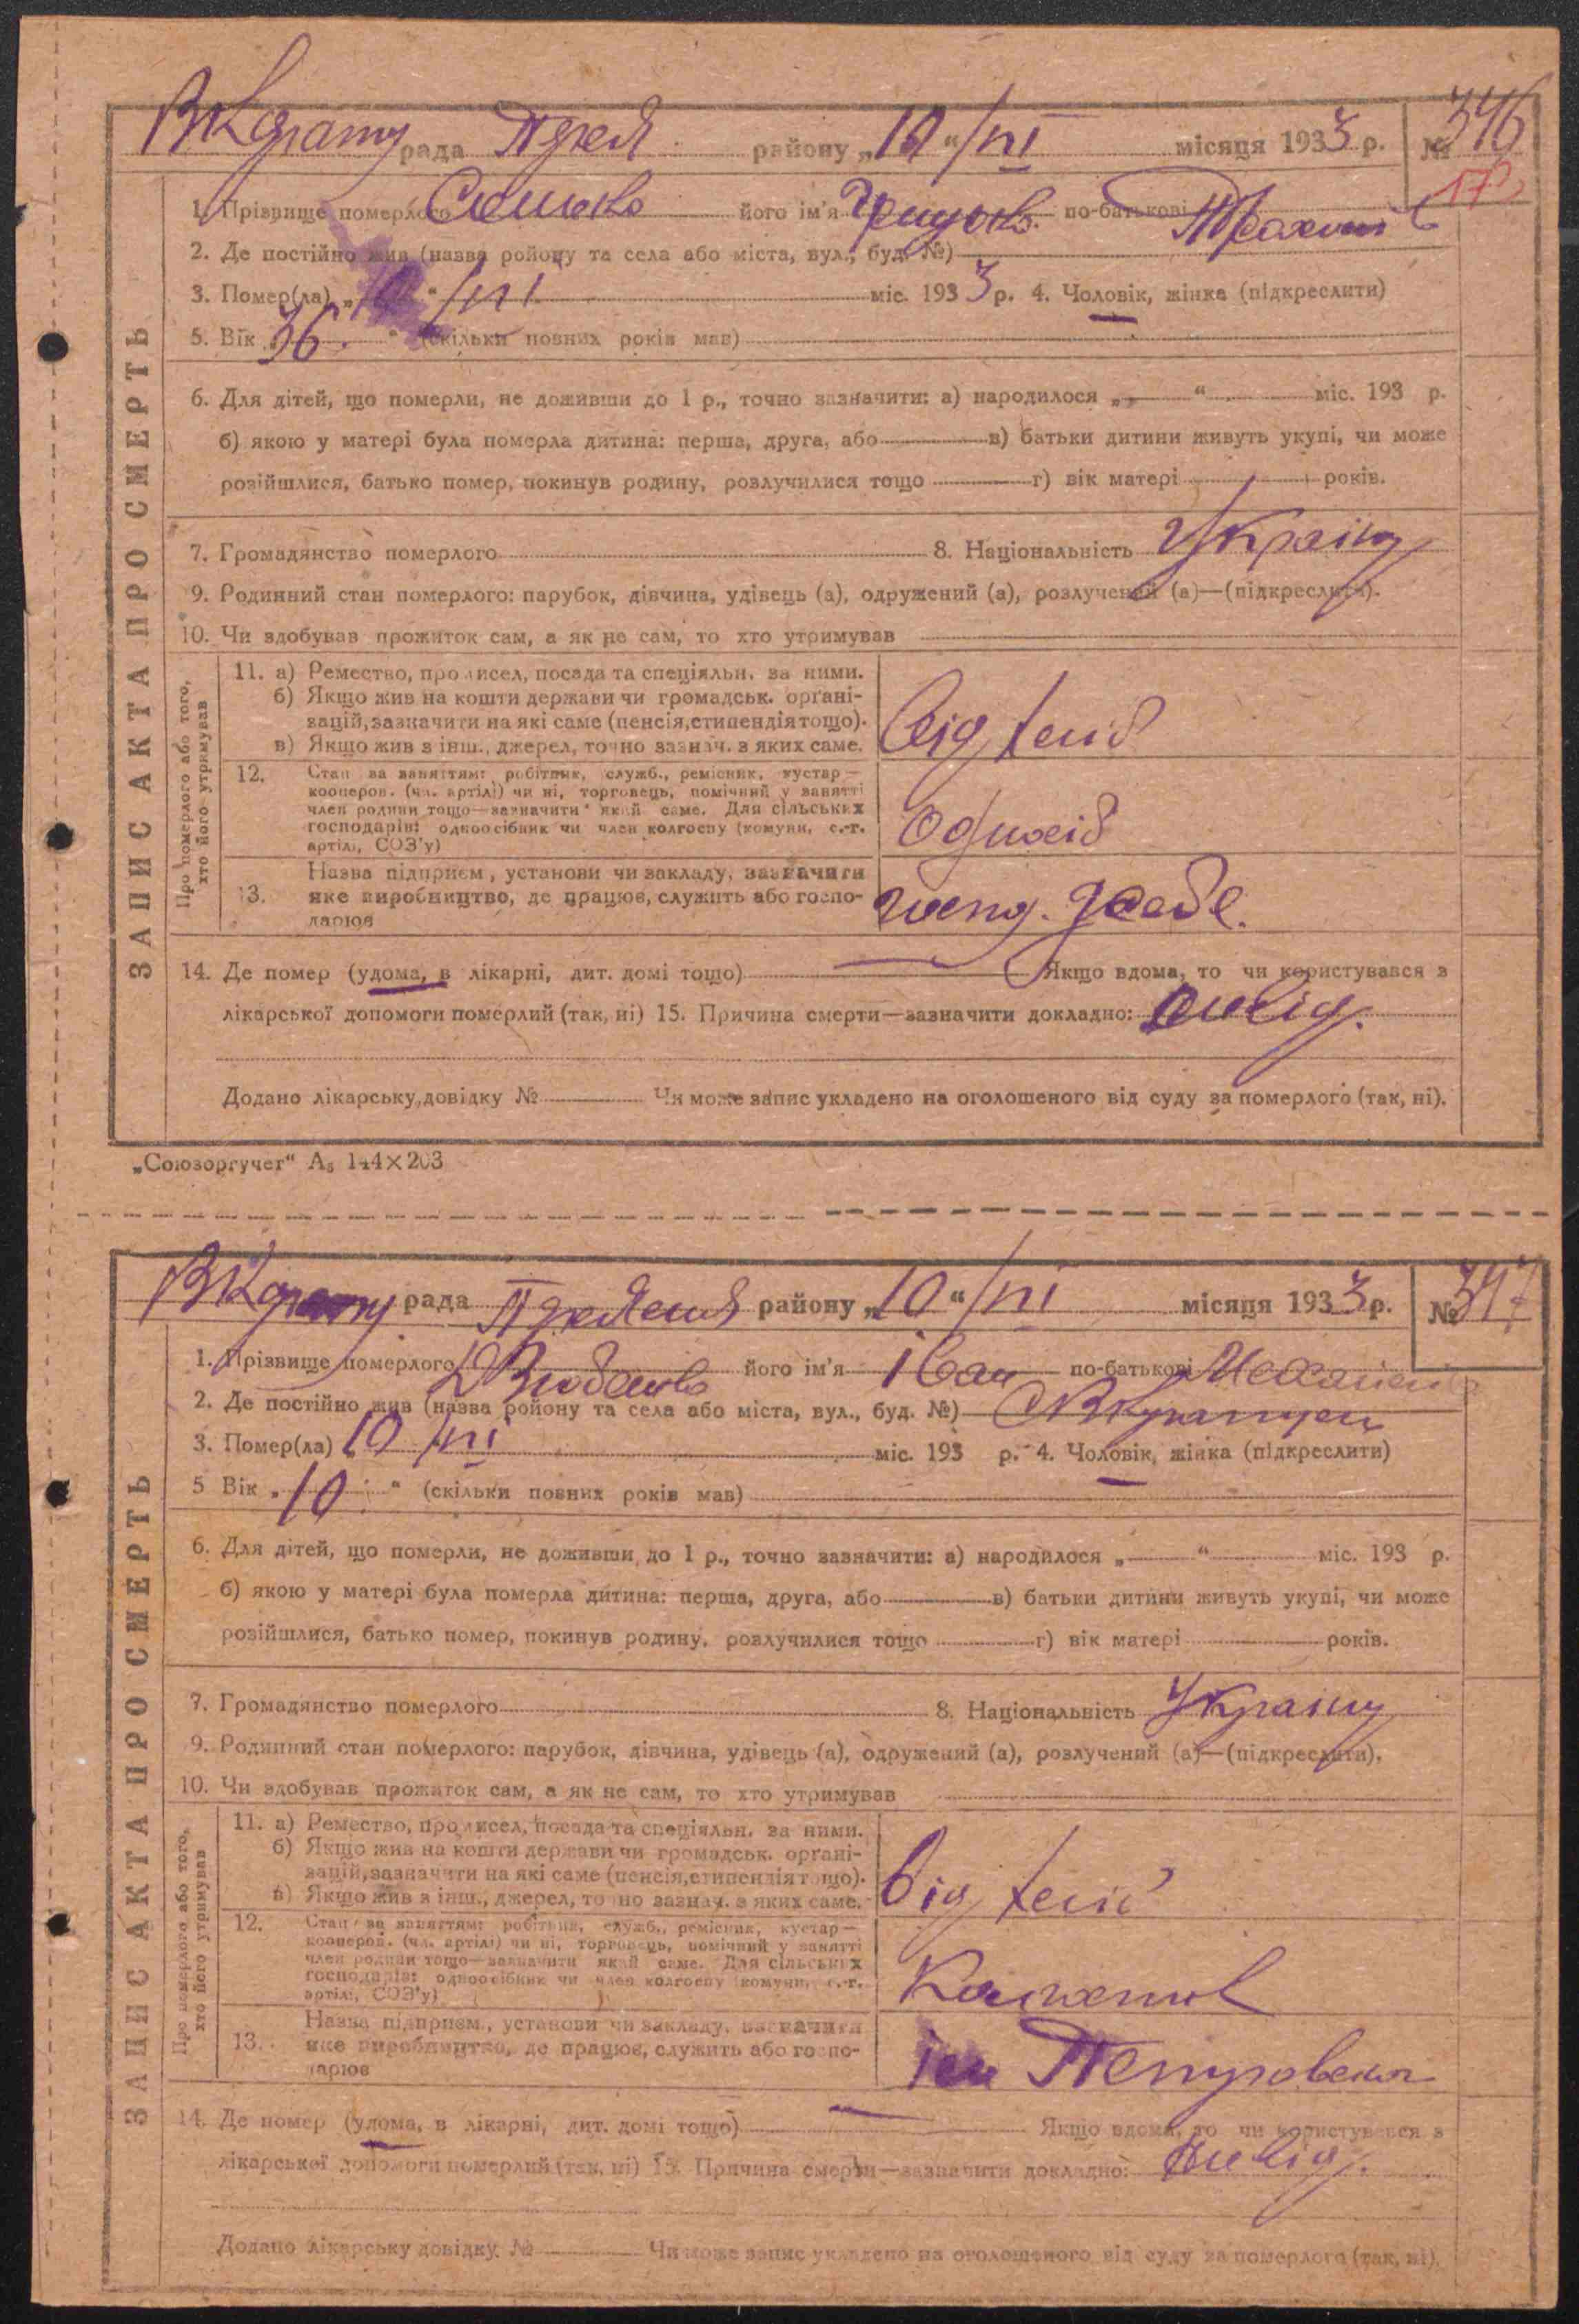 рада району „10“/VI місяця 1933 р. № 346
1. Прізвище померлого його ім'я по-батькові
2. Де постійно жив (назва ройону та села або міста, вул., буд. №)
3. Помер(ла) „10“/VI міс. 1933 р. 4. Чоловік, жінка (підкреслити)
5. Вік „36“ (скільки повних років мав)
6. Для дітей, що померли, не доживши до 1 р., точно зазначити: а) народилося „ “ міс. 193 р.
б) якою у матері була померла дитина: перша, друга, або в) батьки дитини живуть укупі, чи може
розійшлися, батько помер, покинув родину, розлучилися тощо г) вік матері років.
7. Громадянство померлого 8. Національність Україну
9. Родинний стан померлого: парубок, дівчина, удівець (а), одружений (а), розлучений (а)—(підкреслити).
10. Чи здобував прожиток сам, а як не сам, то хто утримував
ЗАПИС АКТА ПРО СМЕРТЬ
Про померлого або того,
хто його утримував
11. а) Ремество, промисел, посада та спеціяльн. за ними.
б) Якщо жив на кошти держави чи громадськ. орґані-
зацій, зазначити на які саме (пенсія, стипендія тощо).
в) Якщо жив з інш., джерел, точно зазнач. з яких саме.
12. Стан за заняттям: робітник, служб., ремісник, кустар —
кооперов. (чл. артілі) чи ні, торговець, помічний у занятті
член родини тощо—зазначити який саме. Для сільських
господарів: одноосібник чи член колгоспу (комуни, с.-г.
артілі, СОЗ'у)
Одноосіб
13. Назва підприєм., установи чи закладу, зазначити
яке виробництво, де працює, служить або госпо-
дарює
14. Де помер (удома, в лікарні, дит. домі тощо) Якщо вдома, то чи користувався з
лікарської допомоги померлий (так, ні) 15. Причина смерти—зазначити докладно:
Додано лікарську довідку № Чи може запис укладено на оголошеного від суду за померлого (так, ні).
„Союзоргучет“ А₅ 144×203
рада району „10“/VI місяця 1933 р. № 347
1. Прізвище померлого його ім'я Іван по-батькові
2. Де постійно жив (назва ройону та села або міста, вул., буд. №)
3. Помер(ла) 10/VI міс. 193 р. 4. Чоловік, жінка (підкреслити)
5 Вік „10“ (скільки повних років мав)
6. Для дітей, що померли, не доживши до 1 р., точно зазначити: а) народилося „ “ міс. 193 р.
б) якою у матері була померла дитина: перша, друга, або в) батьки дитини живуть укупі, чи може
розійшлися, батько помер, покинув родину, розлучилися тощо г) вік матері років.
7. Громадянство померлого 8. Національність Україну
9. Родинний стан померлого: парубок, дівчина, удівець (а), одружений (а), розлучений (а)—(підкреслити).
10. Чи здобував прожиток сам, а як не сам, то хто утримував
ЗАПИС АКТА ПРО СМЕРТЬ
Про померлого або того,
хто його утримував
11. а) Ремество, промисел, посада та спеціяльн. за ними.
б) Якщо жив на кошти держави чи громадськ. орґані-
зацій, зазначити на які саме (пенсія, стипендія тощо).
в) Якщо жив з інш., джерел, точно зазнач. з яких саме.
12. Стан за заняттям: робітник, служб., ремісник, кустар —
кооперов. (чл. артілі) чи ні, торговець, помічний у занятті
член родини тощо—зазначити який саме. Для сільських
господарів: одноосібник чи член колгоспу (комуни, с.-г.
артілі, СОЗ'у)
13. Назва підприєм., установи чи закладу, зазначити
яке виробництво, де працює, служить або госпо-
дарює
ім Петровского
14. Де помер (удома, в лікарні, дит. домі тощо) Якщо вдома, то чи користувався з
лікарської допомоги померлий (так, ні) 15. Причина смерти—зазначити докладно:
Додано лікарську довідку № Чи може запис укладено на оголошеного від суду за померлого (так, ні).